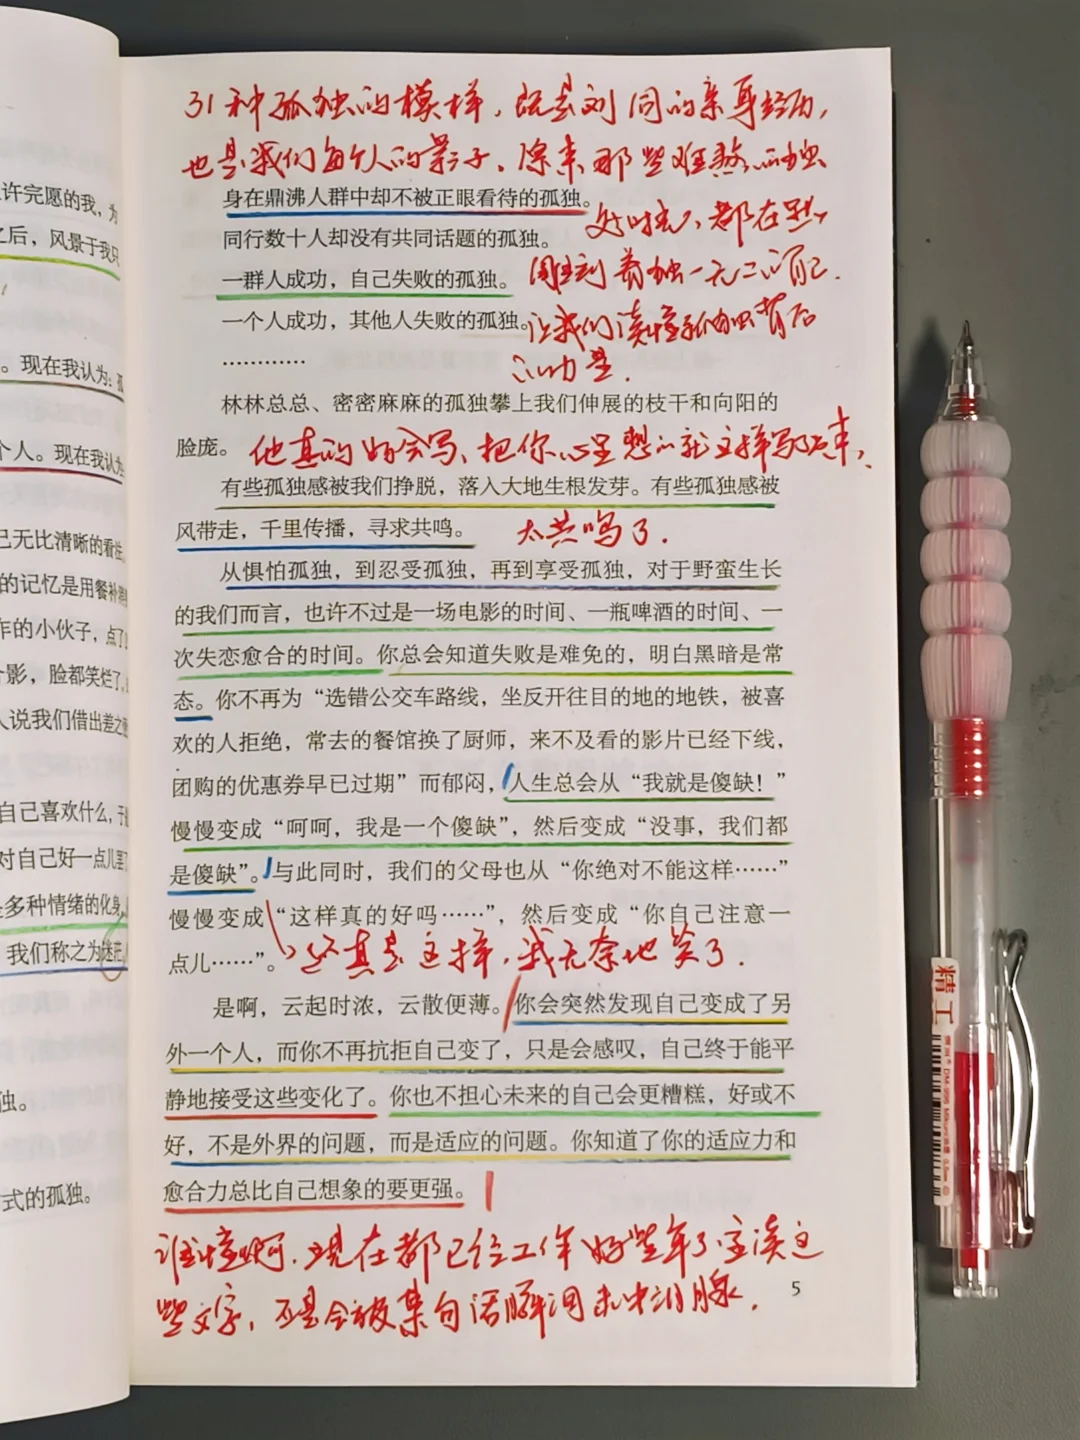 许完愿的我，为
之后，风景于我只
。现在我认为：孤
个人。现在我认为
已无比清晰的看
的记忆是用餐补
作的小伙子，点了
影，脸都笑烂了
人说我们借出差之
自己喜欢什么，于
对自己好一点儿
多种情绪的化身
我们称之为迷茫
独。
式的孤独。
31种孤独的模样，既是刘同的亲身经历，
也是我们每个人的影子，原来那些难熬的孤独
身在鼎沸人群中却不被正眼看待的孤独。
好时光，都在
同行数十人却没有共同话题的孤独。
一群人成功，自己失败的孤独。
雕刻着独一无二的自己.
一个人成功，其他人失败的孤独。
让我们读懂孤独背后
…………
的力量.
林林总总、密密麻麻的孤独攀上我们伸展的枝干和向阳的
脸庞。
他真的好会写，把你心里想的就这样写出来，
有些孤独感被我们挣脱，落入大地生根发芽。有些孤独感被
风带走，千里传播，寻求共鸣。
太共鸣了.
从惧怕孤独，到忍受孤独，再到享受孤独，对于野蛮生长
的我们而言，也许不过是一场电影的时间、一瓶啤酒的时间、一
次失恋愈合的时间。你总会知道失败是难免的，明白黑暗是常
态。你不再为“选错公交车路线，坐反开往目的地的地铁，被喜
欢的人拒绝，常去的餐馆换了厨师，来不及看的影片已经下线，
团购的优惠券早已过期”而郁闷，人生总会从“我就是傻缺！”
慢慢变成“呵呵，我是一个傻缺”，然后变成“没事，我们都
是傻缺”。与此同时，我们的父母也从“你绝对不能这样……”
慢慢变成“这样真的好吗……”，然后变成“你自己注意一
点儿……”。
还真是这样，我无奈地笑了.
是啊，云起时浓，云散便薄。你会突然发现自己变成了另
外一个人，而你不再抗拒自己变了，只是会感叹，自己终于能平
静地接受这些变化了。你也不担心未来的自己会更糟糕，好或不
好，不是外界的问题，而是适应的问题。你知道了你的适应力和
愈合力总比自己想象的要更强。
谁懂啊，现在都已经工作好些年了，读这
些文字，还是会被某句话瞬间击中泪腺.
5
精工